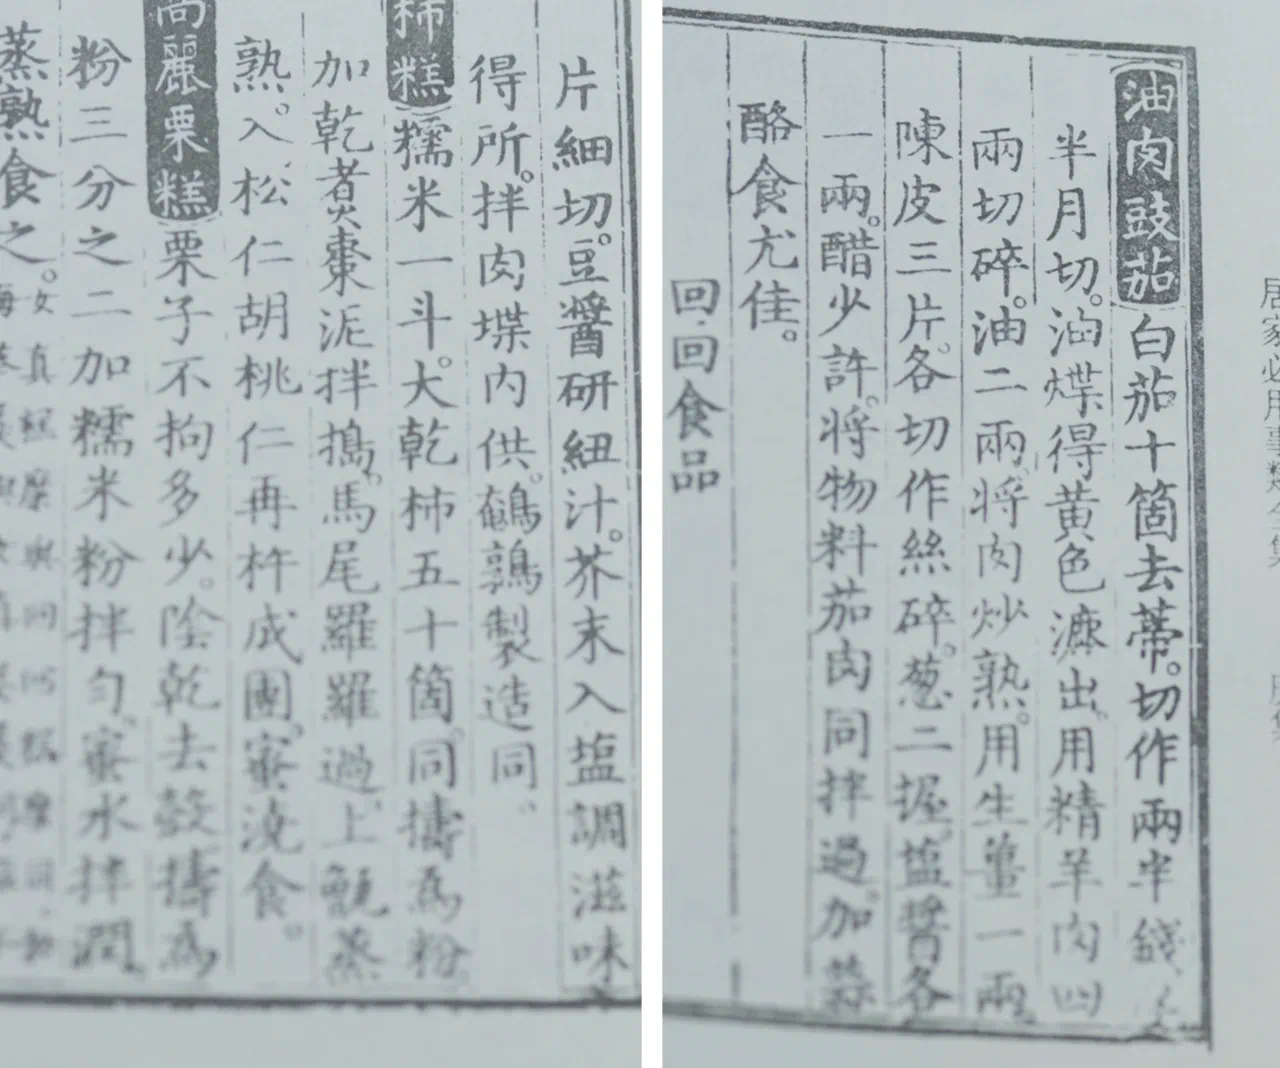 居家必用事類全集
油肉豉茄白茄十箇去蒂。切作兩半
半月切。油煠得黄色漉出。用精羊肉四
兩切碎。油二兩。將肉炒熟。用生薑一兩
陳皮三片。各切作絲碎。葱二握。塩醬各
一兩。醋少許。將物料茄肉同拌過。加蒜
酪食尤佳。
回回食品
片細切。豆醬研紐汁。芥末入塩調滋味
得所。拌肉堞内供。鵪鶉製造同、
柿糕糯米一斗。大乾柿五十箇。同擣為粉
加乾煮棗泥拌搗。馬尾羅羅過。上甑蒸
熟。入松仁胡桃仁再杵成團。蜜澆食。
高麗栗糕栗子不拘多少。陰乾去殼擣為
粉三分之二加糯米粉拌匀。蜜水拌潤。
蒸熟食之。女真糕糜與回回